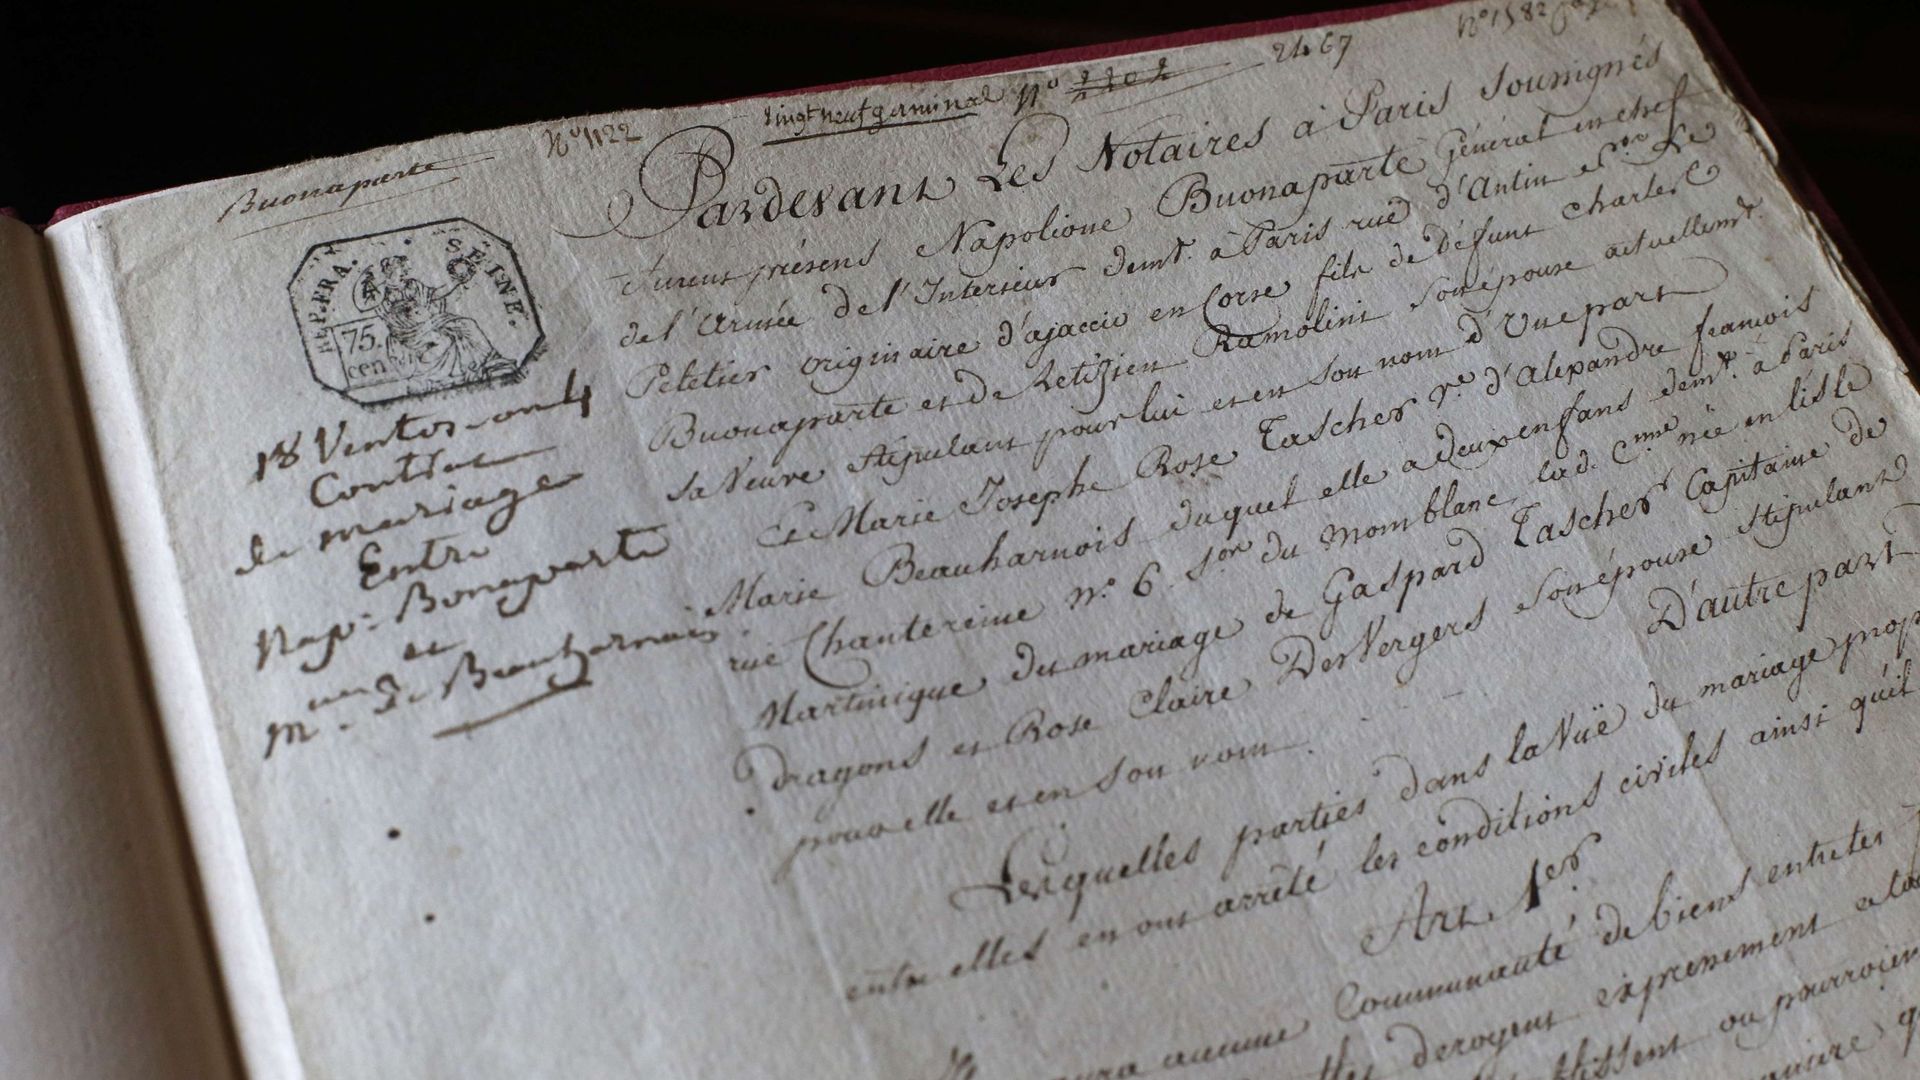 Nº 1582
2467
vingt neuf germinal nº 2202
Nº 1122
Buonaparte
REP. FRA. SEINE.
75.
cen
18 Ventos an 4
Contrat
de mariage
Entre
Nap. Bonaparte
et
De Beauharnais
Pardevant Les Notaires à Paris Soussignés
furent présens Napolione Buonaparte Général en chef
de l'Armée de l'Interieur demt. à Paris rue d'Antin nro. Le
Peletier originaire d'ajaccio en Corse fils de Défunt Charles
Buonaparte et de Letizien Ramolini son épouse actuellemt.
sa Veuve stipulant pour lui et en son nom d'Une part
Et Marie Josephe Rose Tascher Ve. d'alexandre francois
Marie Beauharnois duquel elle a deux enfans demt. à Paris
rue Chantereine nº. 6. son du Montblanc, lad. Cnne née en lisle
Martinique du mariage de Gaspard Tascher Capitaine de
Dragons et Rose Claire DesVergers son épouse Stipulant
pour elle et en son nom. D'autre part
Lesquelles parties dans la Vuë du mariage
entre elles en ont arrêté les conditions civiles ainsi qu'il
Art 1er.
aucune Communauté de biens entre les
derogent expressement a
ou pourroient